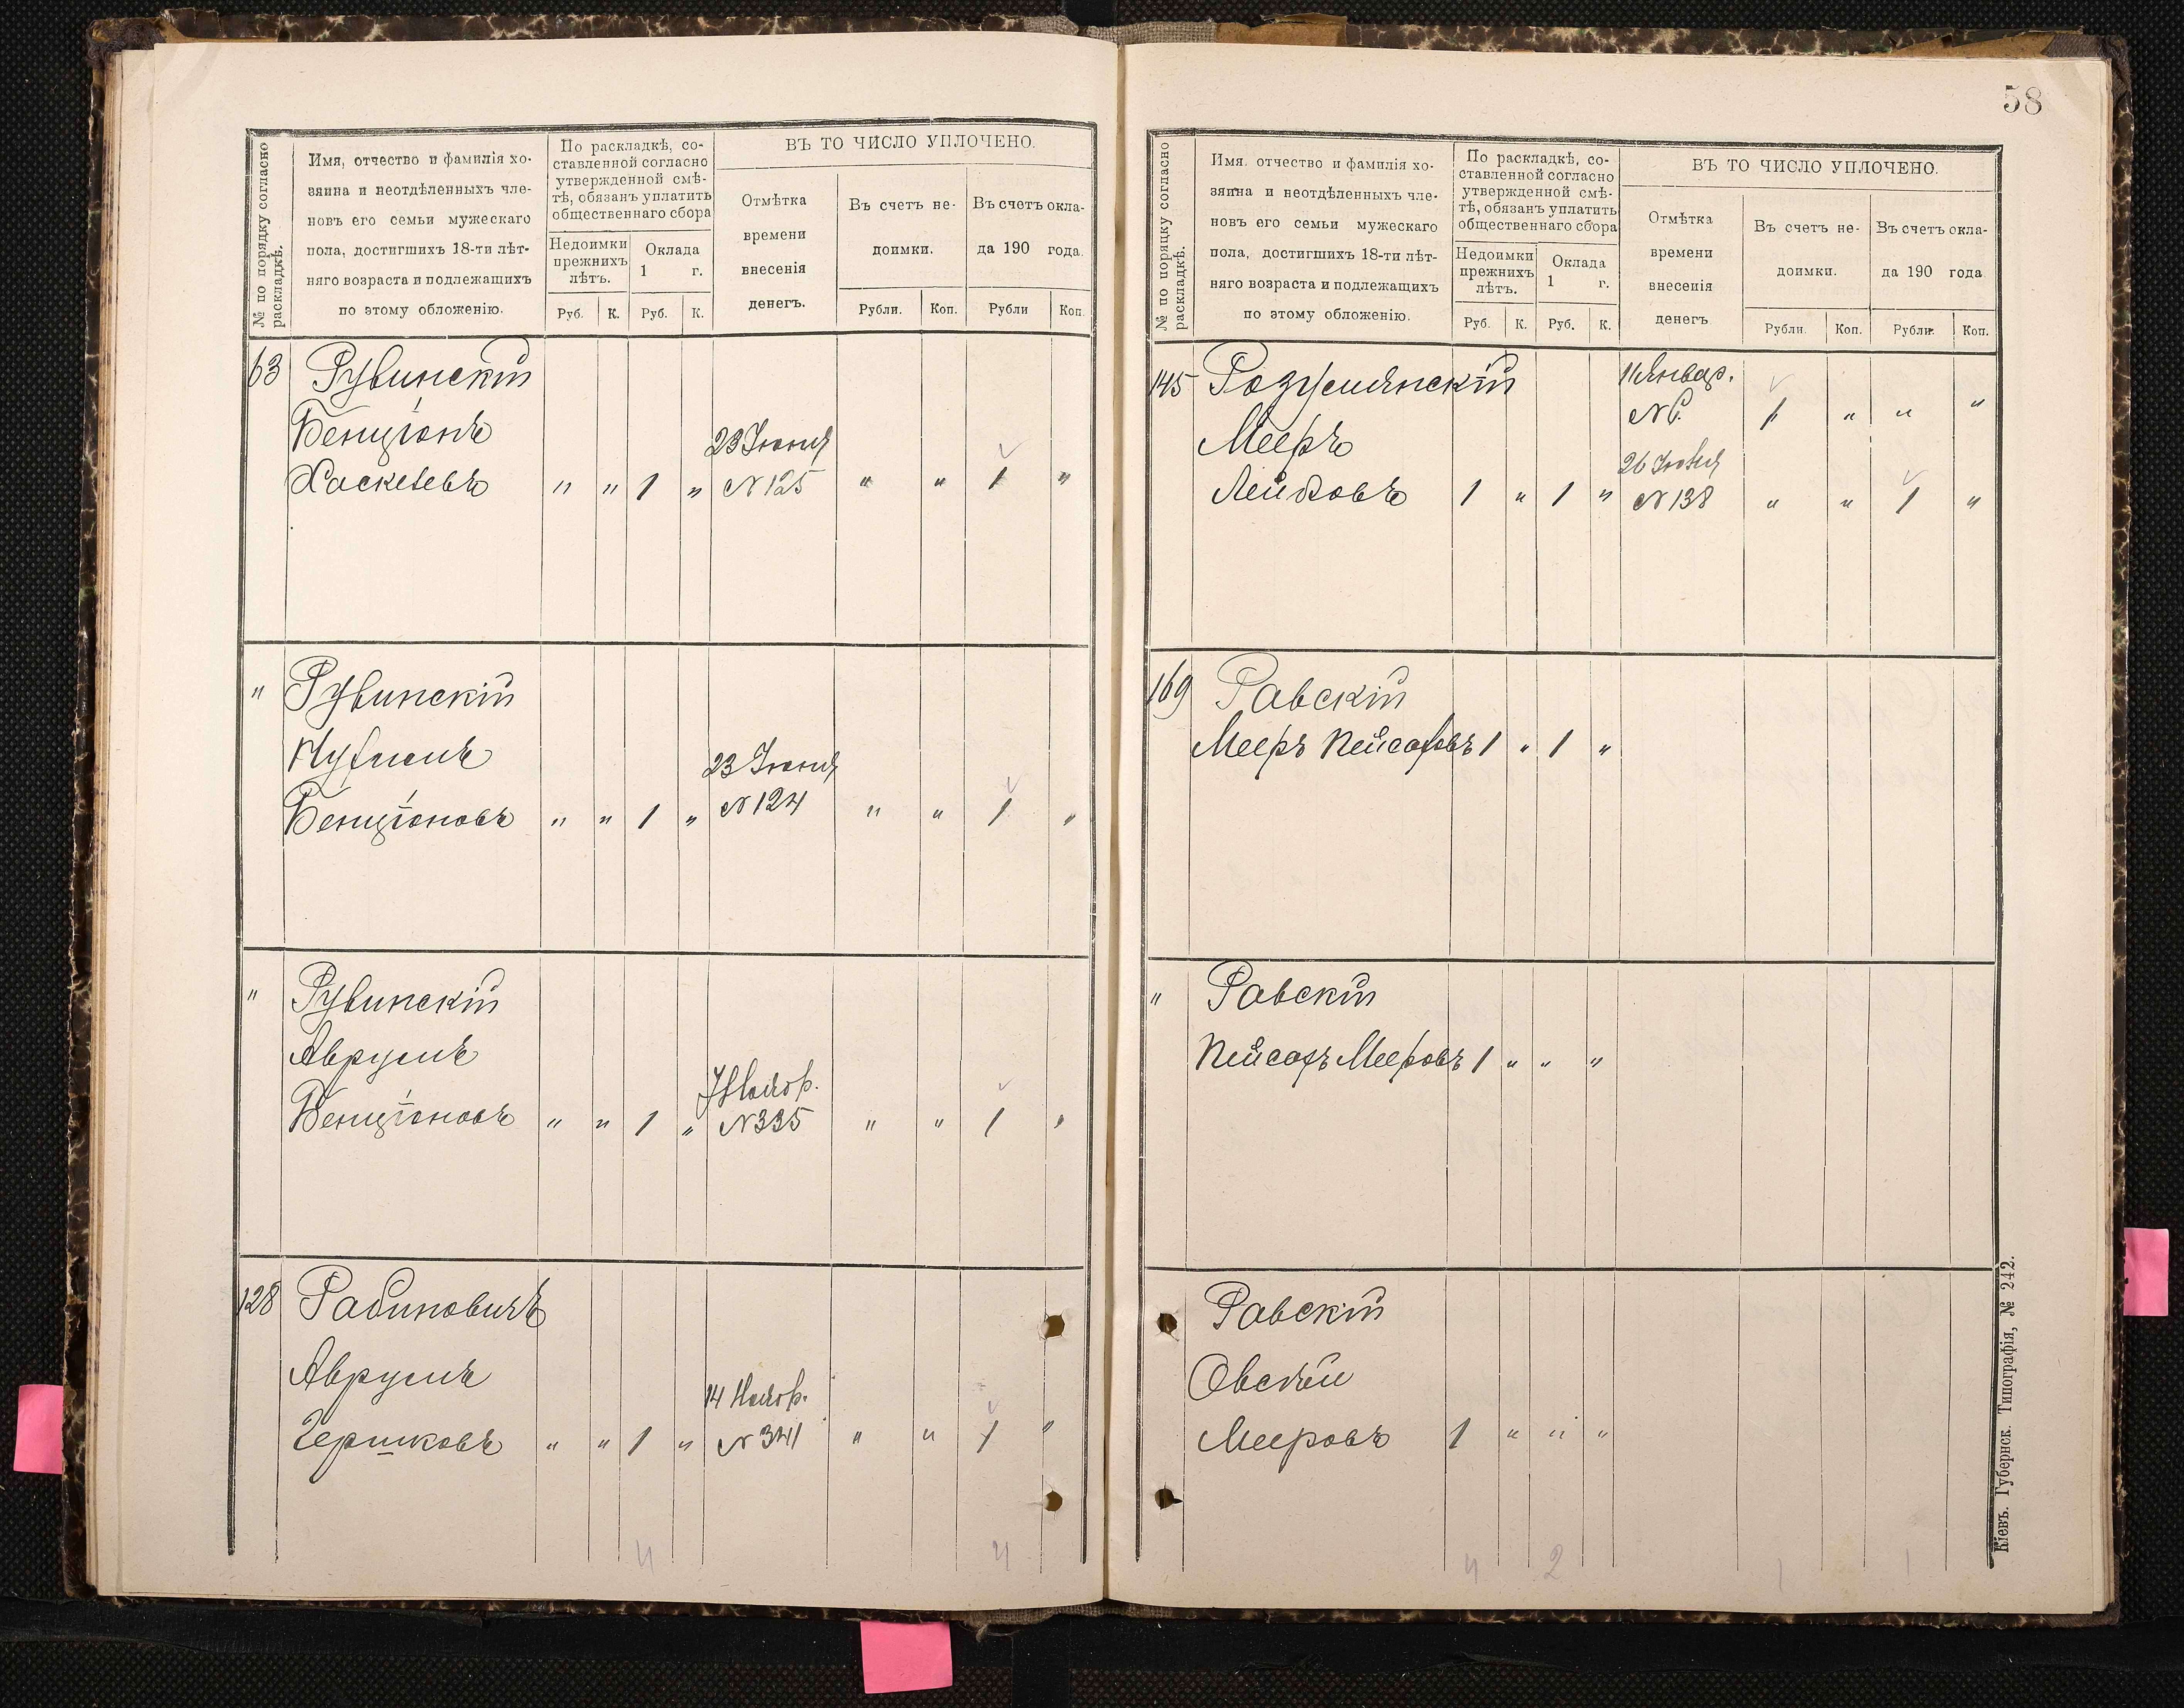 58
№ по порядку согласно раскладкѣ.
Имя, отчество и фамилія хо-
зяина и неотдѣленныхъ чле-
новъ его семьи мужескаго
пола, достигшихъ 18-ти лѣт-
няго возраста и подлежащихъ
по этому обложенію.
По раскладкѣ, со-
ставленной согласно
утвержденной смѣ-
тѣ, обязанъ уплатить
общественнаго сбора
Недоимки
прежнихъ
лѣтъ.
Оклада
1 г.
Руб. К. Руб. К.
ВЪ ТО ЧИСЛО УПЛОЧЕНО.
Отмѣтка
времени
внесенія
денегъ.
Въ счетъ не-
доимки.
Рубли. Коп.
Въ счетъ окла-
да 190 года.
Рубли Коп.
63 Рувинскій
Бенціонъ
23 Іюня
Хаскелевъ " " 1 " № 125 " " 1 "
" Рувинскій
23 Іюня
Бенціоновъ " " 1 " № 124 " " 1 "
" Рувинскій
Аврумъ
7 Ноябр.
Бенціоновъ " " 1 " № 335 " " 1 "
128 Рабиновичъ
Аврумъ
14 Ноябр.
Гершковъ " " 1 " № 341 " " 1 "
4 4
№ по порядку согласно раскладкѣ.
Имя, отчество и фамилія хо-
зяина и неотдѣленныхъ чле-
новъ его семьи мужескаго
пола, достигшихъ 18-ти лѣт-
няго возраста и подлежащихъ
по этому обложенію.
По раскладкѣ, со-
ставленной согласно
утвержденной смѣ-
тѣ, обязанъ уплатить
общественнаго сбора
Недоимки
прежнихъ
лѣтъ.
Оклада
1 г.
Руб. К. Руб. К.
ВЪ ТО ЧИСЛО УПЛОЧЕНО.
Отмѣтка
времени
внесенія
денегъ
Въ счетъ не-
доимки.
Рубли. Коп.
Въ счетъ окла-
да 190 года.
Рубли. Коп.
145 Розумянскій 11 Январ.
Мееръ № 6. 1 " " "
26 Іюня
Лейбовъ 1 " 1 " № 138 " " 1 "
169 Равскій
Мееръ Пейсаховъ 1 " 1 "
" Равскій
Пейсахъ Мееровъ 1 " " "
Равскій
Овсѣй
Мееровъ 1 " " "
4 2 1 1
Кіевъ. Губернск. Типографія, № 242.